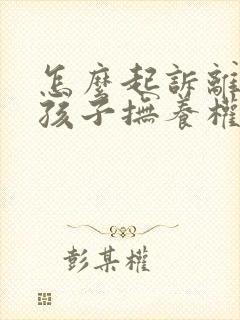 怎麼起訴離
孩子撫養權
彭某權